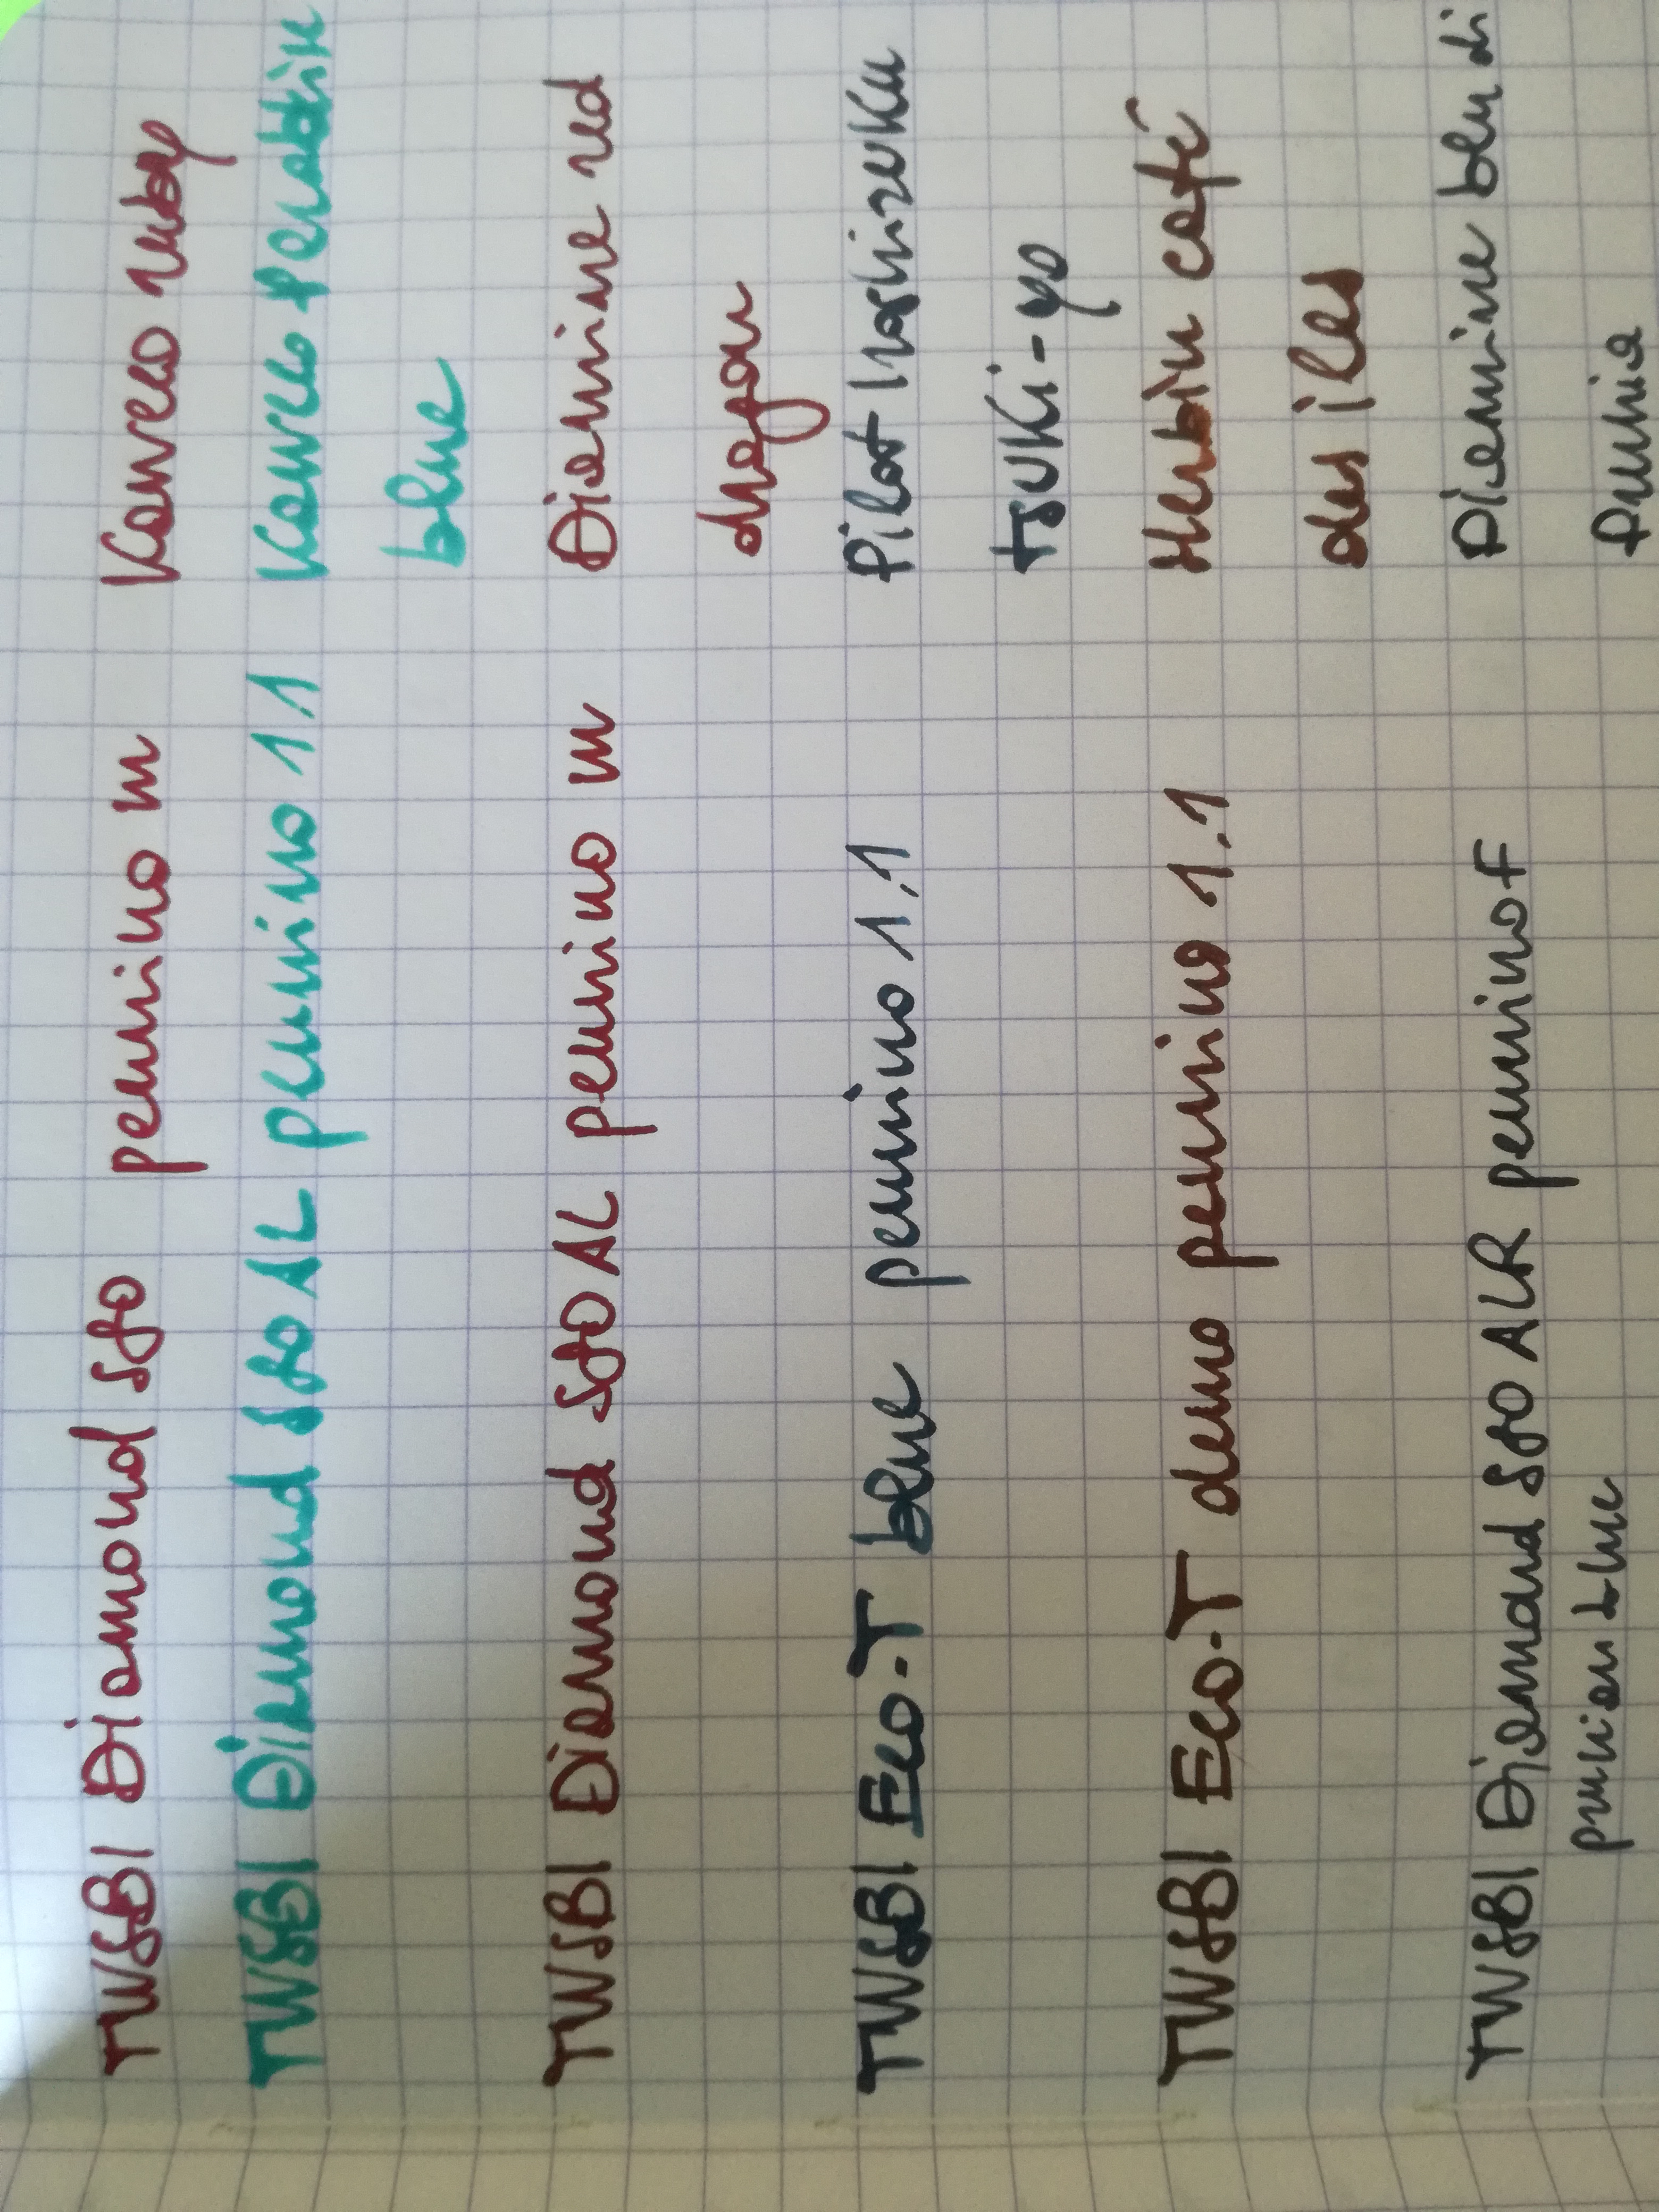 TWSBI Diamond 580 pennino m Kaweco ruby
TWSBI Diamond 580 AL pennino 1.1 Kaweco Paradise
blue
TWSBI Diamond 580 AL pennino m Diamine red
dragon
TWSBI Eco-T blue pennino 1.1 Pilot Iroshizuku
tsuki-yo
TWSBI Eco-T demo pennino 1.1 Herbin café
des îles
TWSBI Diamond 580 ALR pennino F Diamine blu di
prussian blue Prussia